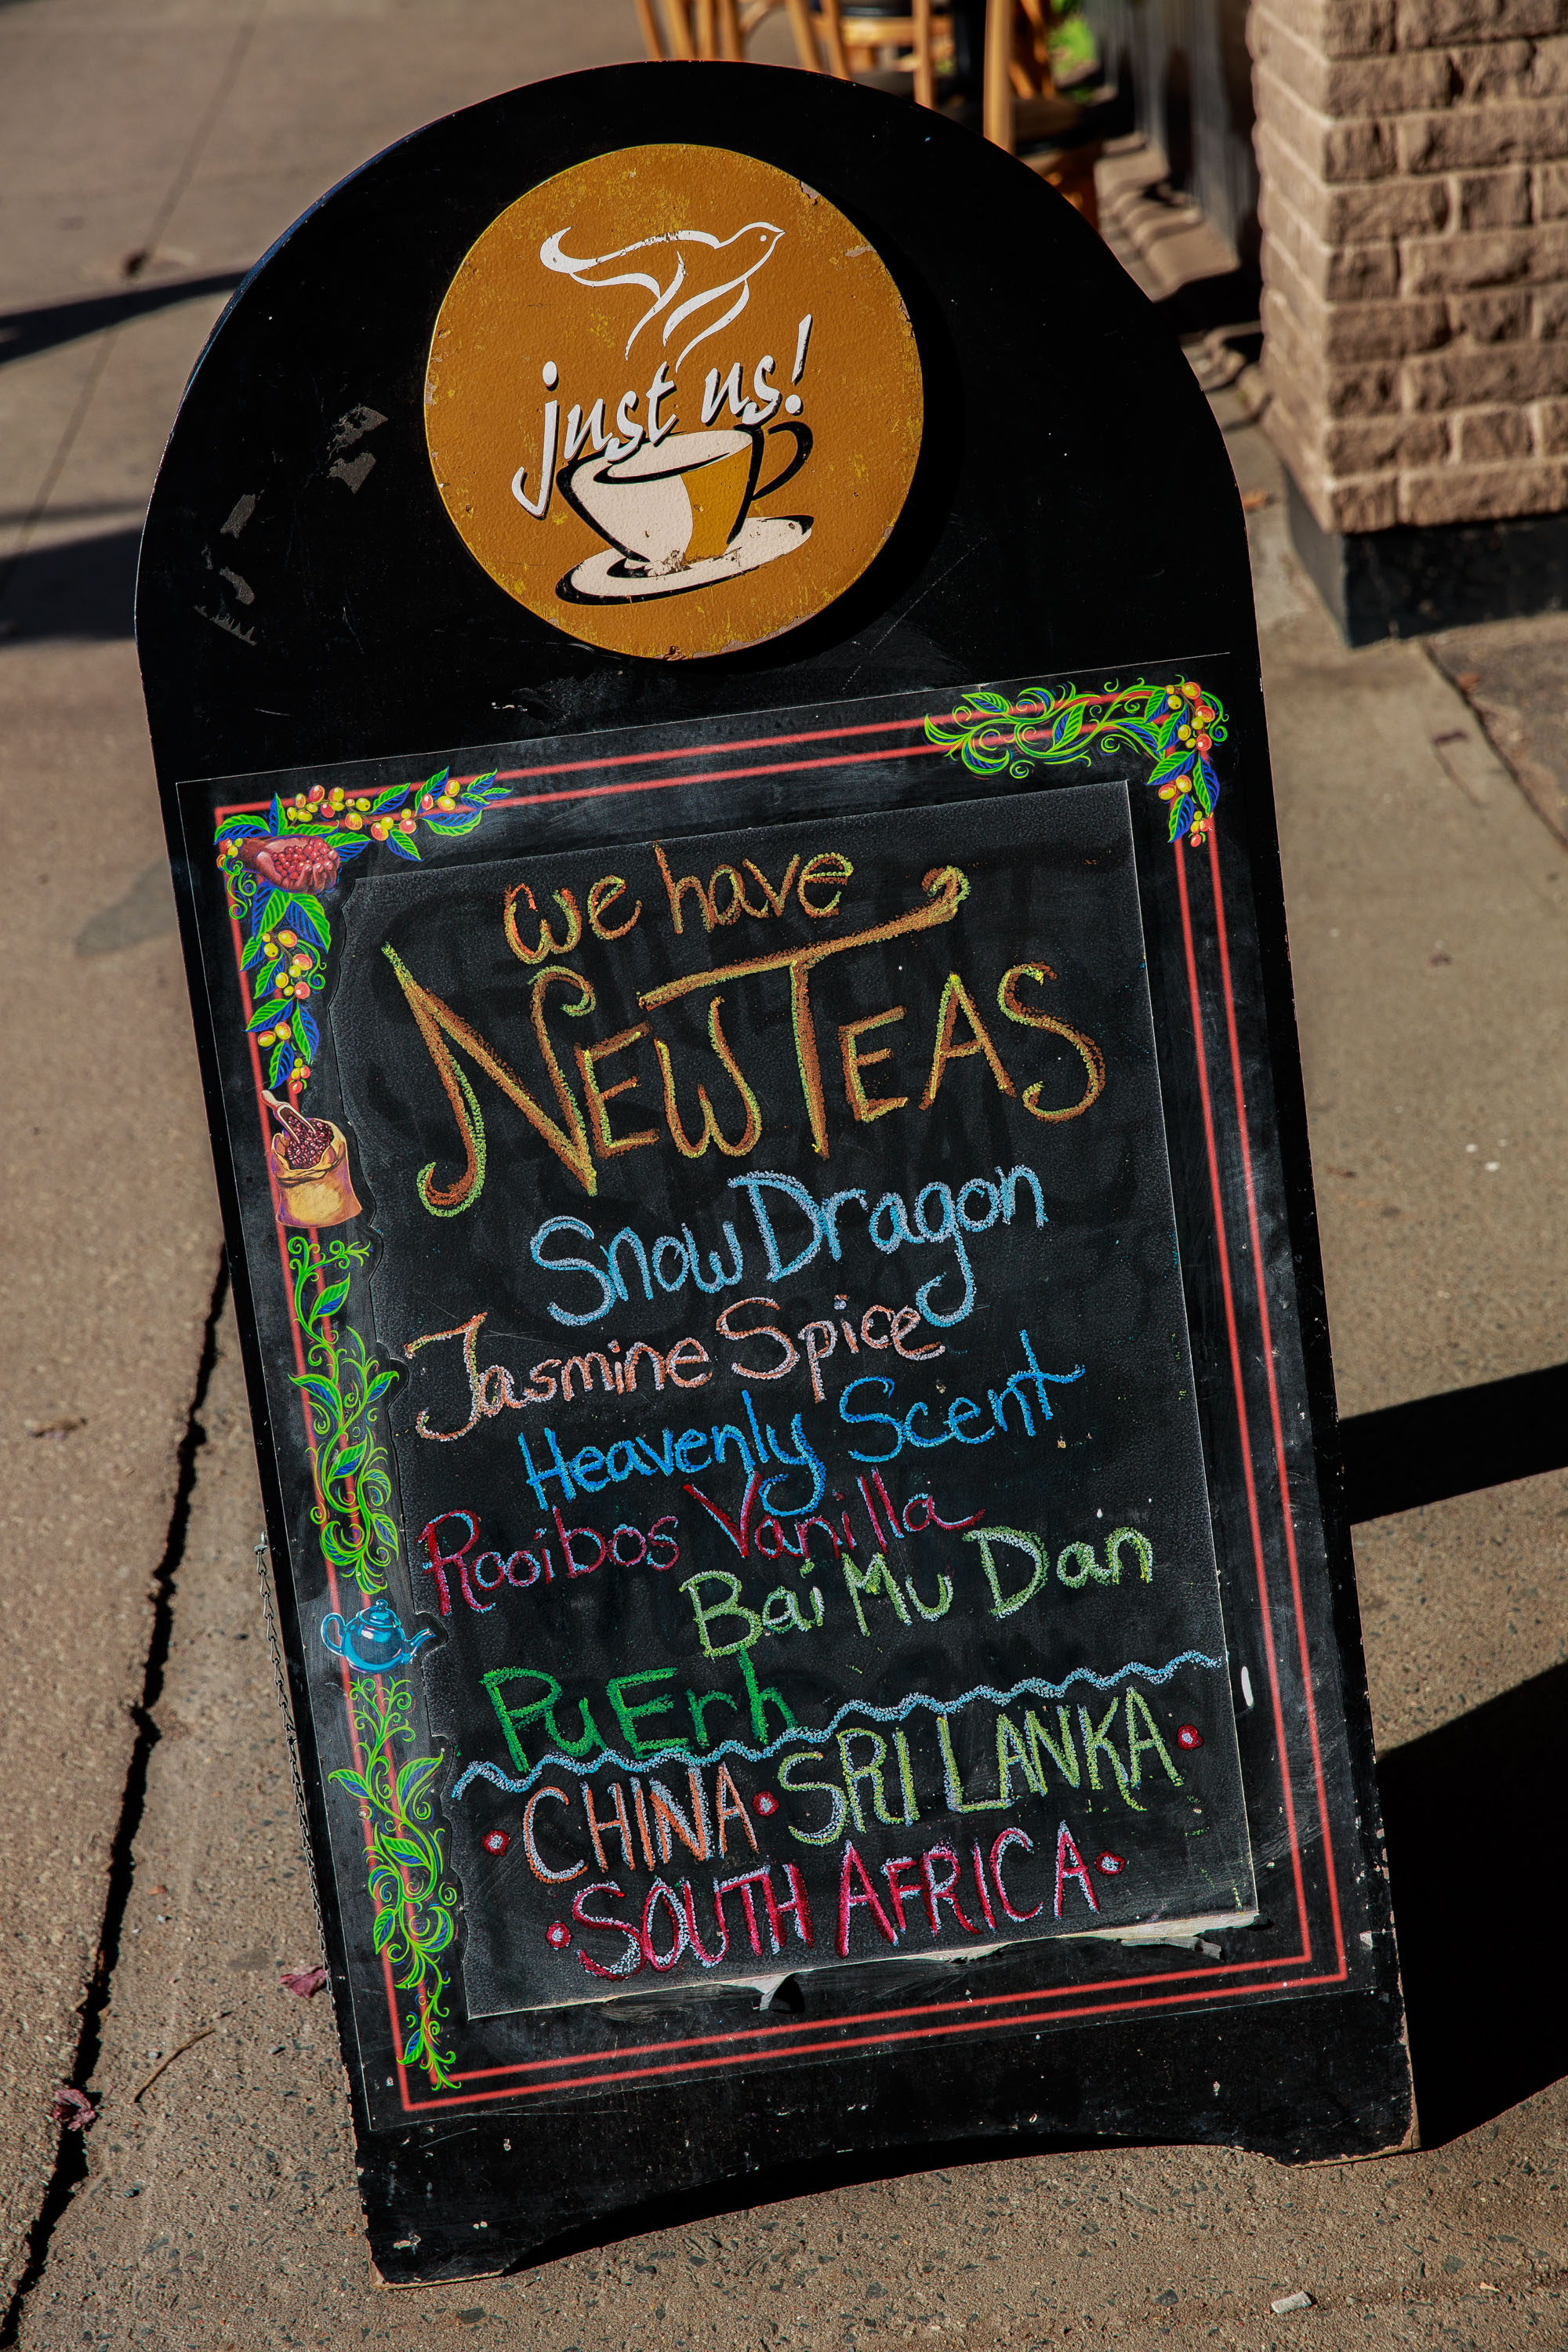 just us!
we have
NEW TEAS
Snow Dragon
Jasmine Spice
Heavenly Scent
Rooibos Vanilla
Bai Mu Dan
PuErh
CHINA • SRI LANKA •
• SOUTH AFRICA •